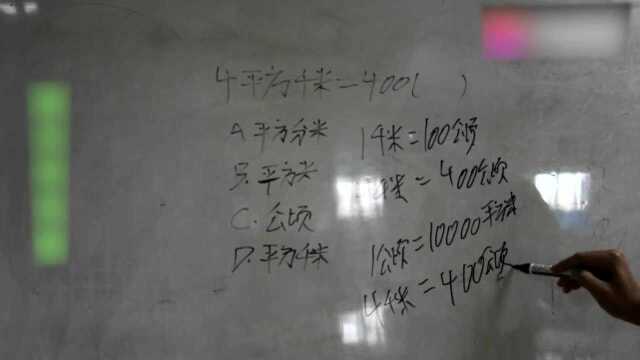 4平方千米=400( )
A.平方分米
B.平方米
C.公顷
D.平方千米
1千米=100公顷
4千米=400公顷
1公顷=10000平方米
4千米=400公顷